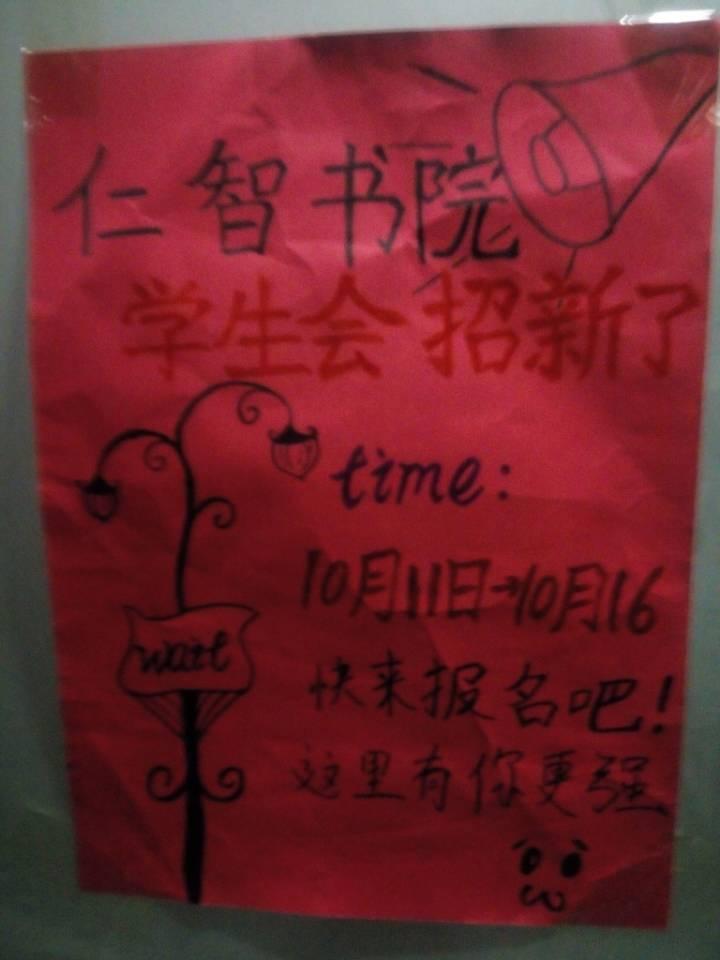 仁智书院
学生会 招新了
time:
10月11日→10月16
wait
快来报名吧!
这里有你更强